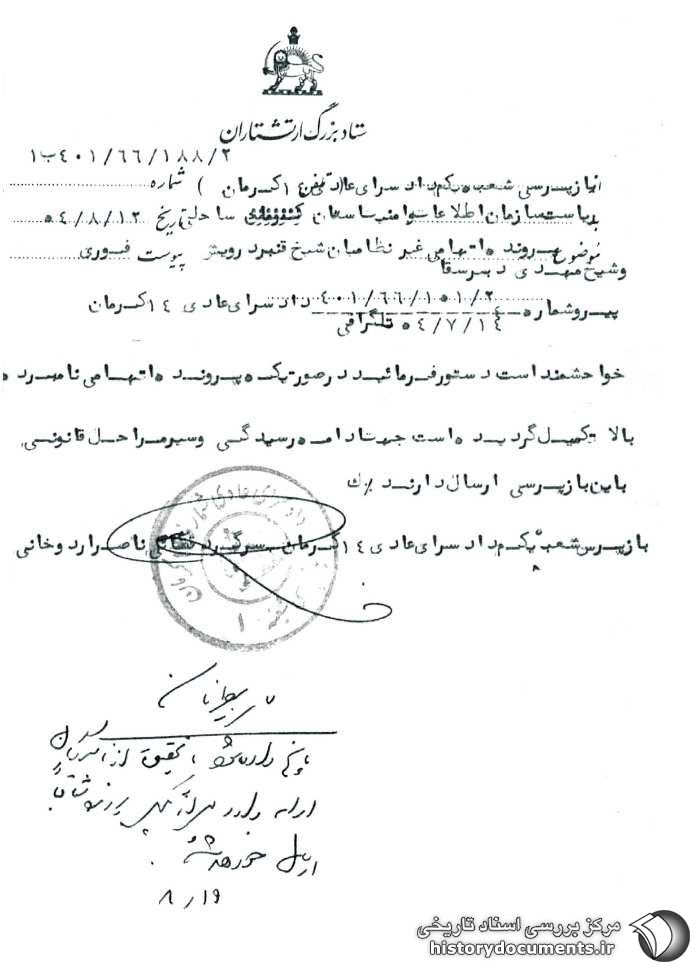 ستاد بزرگ ارتشتاران
۴۰۱/۶۶/۱۸۸/۲ب۱
از بازپرسی شعبه یکم دادسرای عادی ۱۴ کرمان ( شماره
بریاست سازمان اطلاعات وامنیت استان ساحلی تاریخ ۵۴/۸/۱۲
موضوع پرونده اتهامی غیر نظامیان شیخ قنبر درویش پیوست فوری
وشیخ مهدی دبیرسقا
پیروشماره ۴۰۱/۶۶/۱۵۱/۲ دادسرای عادی ۱۴ کرمان
۵۴/۷/۱۴ تلگرافی
خواهشمند است دستور فرمائید درصورتیکه پرونده اتهامی نامبرده
بالا تکمیل گردیده است جهت ادامه رسیدگی وسیر مراحل قانونی
باین بازپرسی ارسال دارند %ک
بازپرس شعبه یکم دادسرای عادی ۱۴ کرمان سرگرد ناصر اردوخانی
دادسرای عادی شماره
۱
تحقیق از
ارسال خواهد شد
۸/۱۹
مرکز بررسی اسناد تاریخی
historydocuments.ir